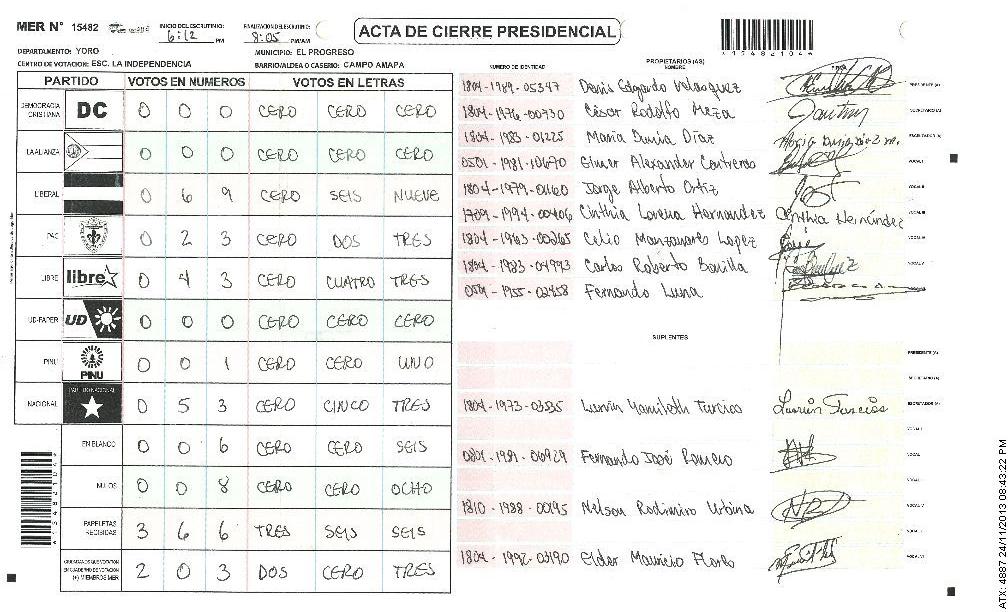 MER N° 15482
INICIO DEL ESCRUTINIO: 6:12 PM
FINALIZACION DEL ESCRUTINIO: 8:05 PM/AM
ACTA DE CIERRE PRESIDENCIAL
DEPARTAMENTO: YORO
MUNICIPIO: EL PROGRESO
CENTRO DE VOTACION: ESC. LA INDEPENDENCIA
BARRIO/ALDEA O CASERIO: CAMPO AMAPA
PARTIDO VOTOS EN NUMEROS VOTOS EN LETRAS
DEMOCRACIA CRISTIANA DC 0 0 0 CERO CERO CERO
LA ALIANZA 0 0 0 CERO CERO CERO
LIBERAL 0 6 9 CERO SEIS NUEVE
PAC 0 2 3 CERO DOS TRES
LIBRE libre 0 4 3 CERO CUATRO TRES
UD-FAPER UD 0 0 0 CERO CERO CERO
PINU PINU 0 0 1 CERO CERO UNO
NACIONAL PARTIDO NACIONAL 0 5 3 CERO CINCO TRES
EN BLANCO 0 0 6 CERO CERO SEIS
NULOS 0 0 8 CERO CERO OCHO
PAPELETAS RECIBIDAS 3 6 6 TRES SEIS SEIS
CIUDADANOS QUE VOTARON EN CUADERNO DE VOTACION (+) MIEMBROS MER 2 0 3 DOS CERO TRES
NUMERO DE IDENTIDAD PROPIETARIOS (AS) NOMBRE
1804-1989-05347 Denis Edgardo Velasquez PRESIDENTE (A)
1804-1976-00730 César Rodolfo Meza SECRETARIO (A)
1804-1983-01225 Maria Dunia Díaz ESCRUTADOR (A)
0501-1981-10670 Elmer Alexander Contreras VOCAL I
1804-1979-01160 Jorge Alberto Ortiz VOCAL II
1709-1994-00406 Cinthia Lorena Hernandez Cynthia Hernández VOCAL III
1804-1963-00265 Celio Manzanares Lopez VOCAL IV
1804-1983-04993 Carlos Roberto Bonilla VOCAL V
Fernando Luna
SUPLENTES
PRESIDENTE (A)
SECRETARIO (A)
1804-1973-03535 ESCRUTADOR (A)
VOCAL I
Fernando José Romero VOCAL
VOCAL
1810-1988-00195 Nelson Rodimiro Urbina VOCAL V
VOCAL
1804-1992-03190 Elder Mauricio Flores VOCAL VI
ATX: 4887 24/11/2013 08:43:22 PM